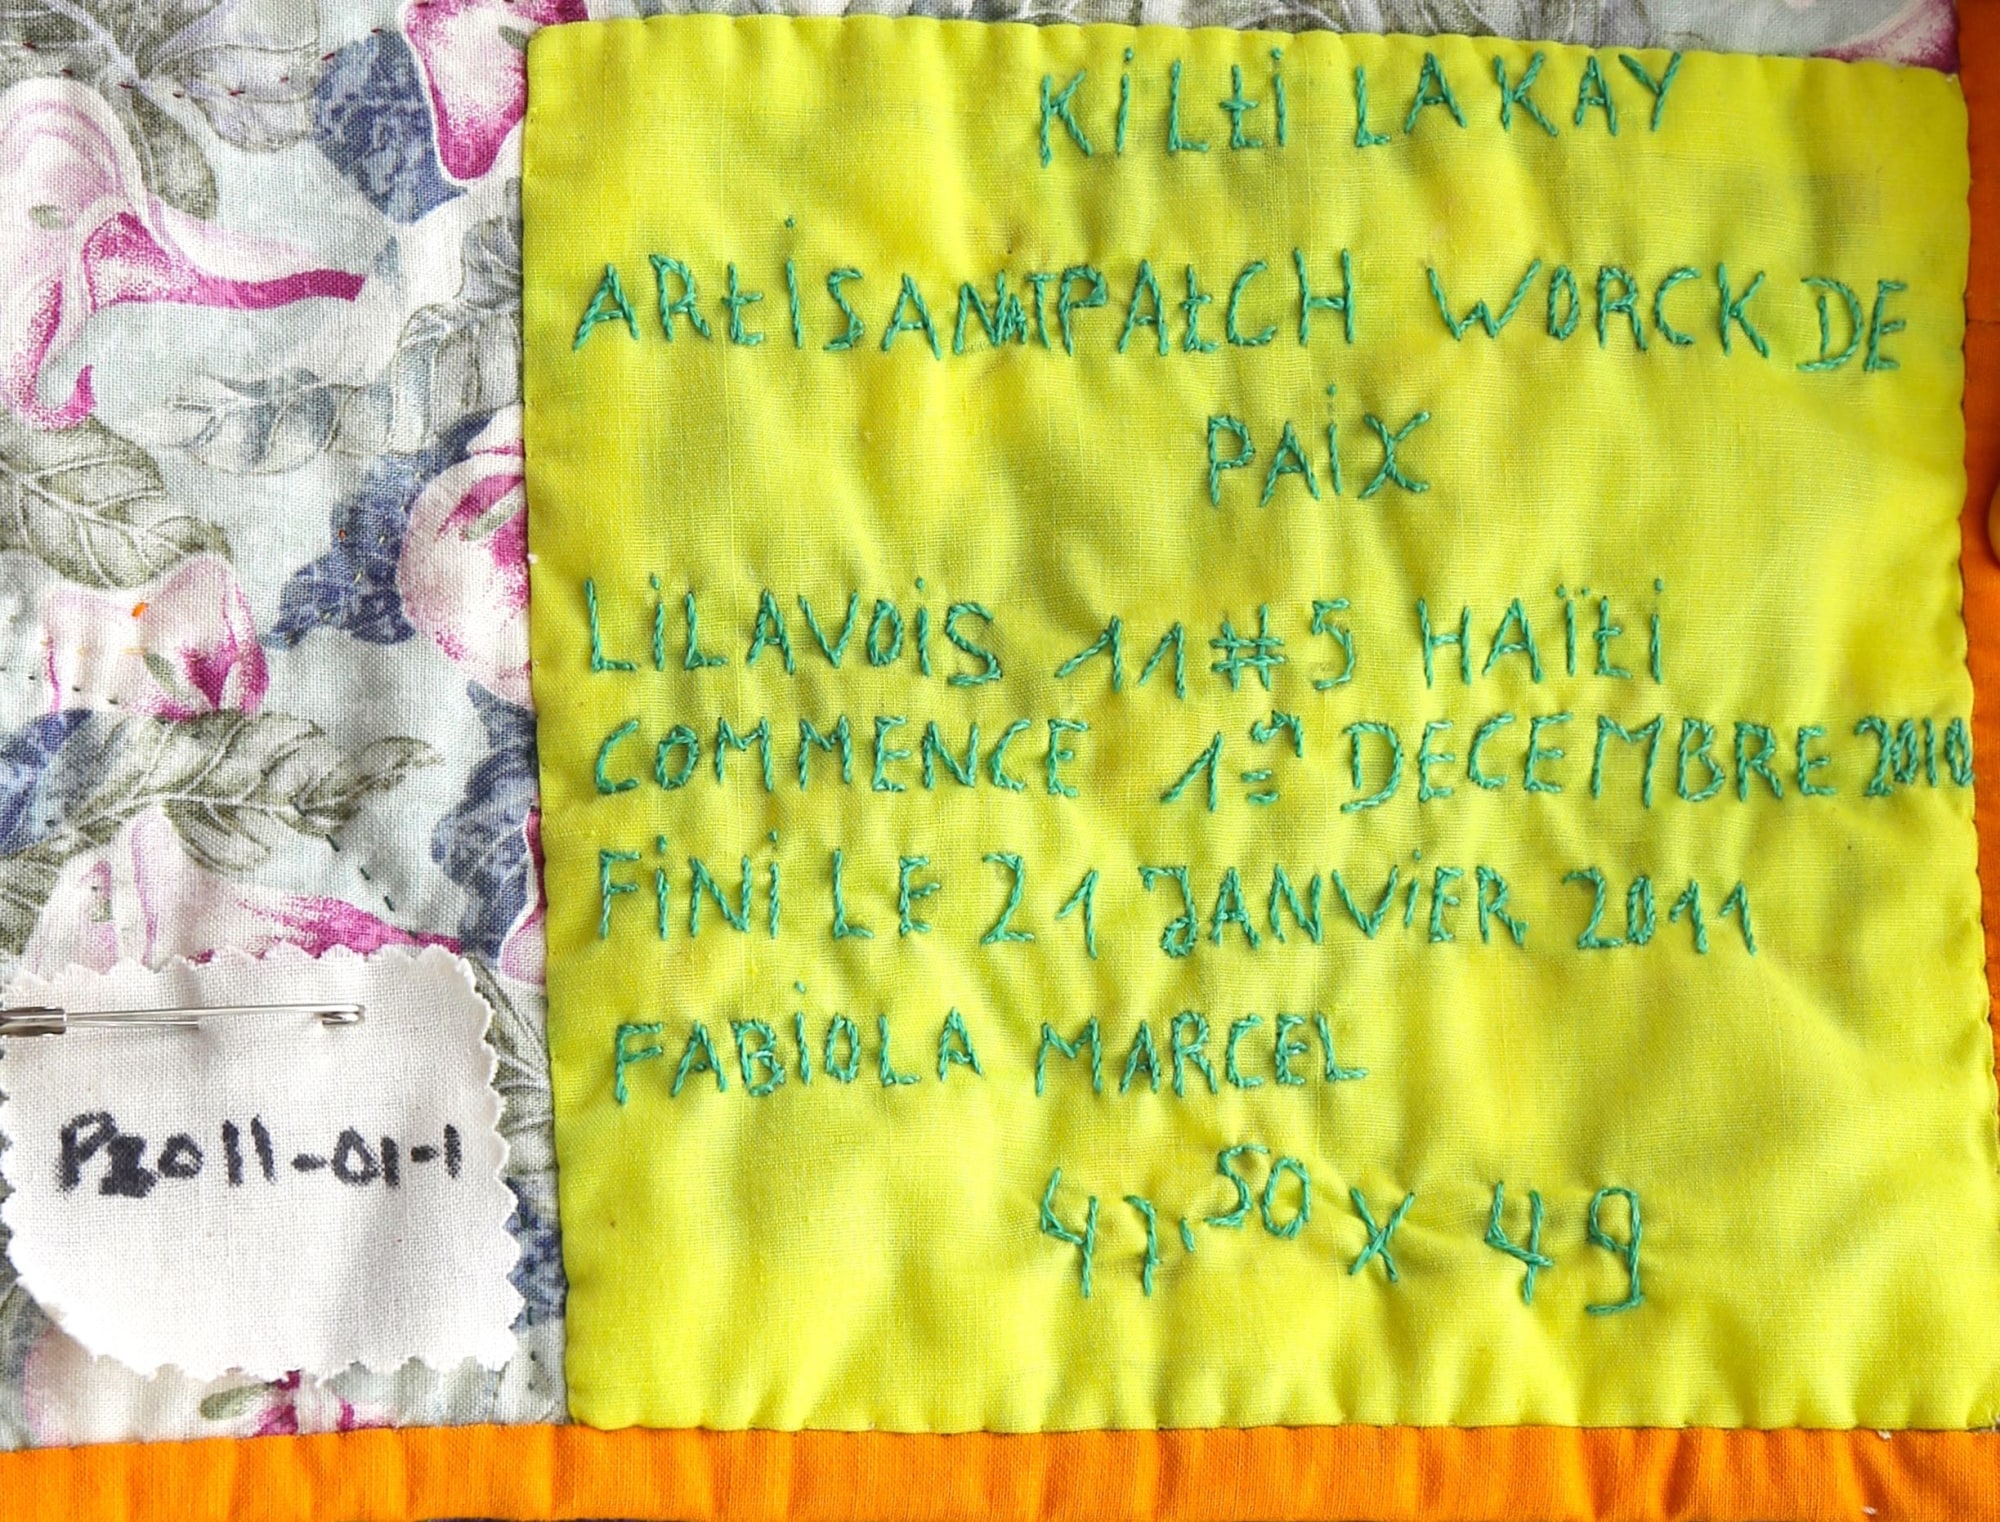 KiLti LAKAY
ARtiSANATPAtCH WORCK DE
PAiX
LiLAVOiS 11 # 5 HAÏti
COMMENCE 1er DECEMBRE 2010
FiNi LE 21 JANViER 2011
FABiOLA MARCEL
41.50 X 49
P2011-01-1